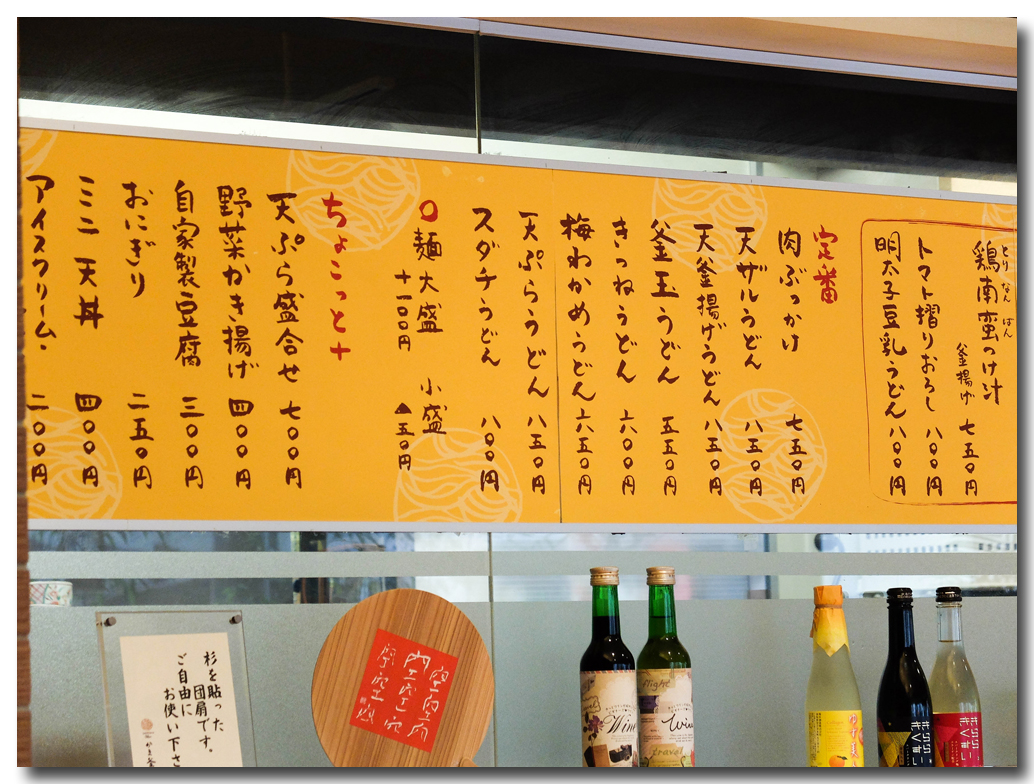 鶏南蛮つけ汁
とりなんばん
釜揚げ 七五〇円
トマト摺りおろし 八〇〇円
明太子豆乳うどん 八〇〇円
定番
肉ぶっかけ 七五〇円
天ザルうどん 八五〇円
天釜揚げうどん 八五〇円
釜玉うどん 五五〇円
きつねうどん 六〇〇円
梅わかめうどん 六五〇円
天ぷらうどん 八五〇円
スダチうどん 八〇〇円
〇麺大盛 小盛
+一〇〇円 ▲五〇円
ちょこっと+
天ぷら盛合せ 七〇〇円
野菜かき揚げ 四〇〇円
自家製豆腐 三〇〇円
おにぎり 二五〇円
ミニ天丼 四〇〇円
アイスクリーム・ 二〇〇円
杉を貼った
団扇です。
ご自由に
お使い下さ
flight
Wine
travel